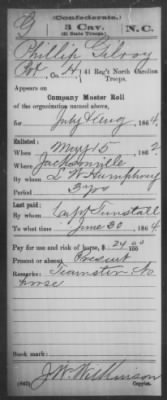 (Confederate.)
G 3 Cav. N.C.
(41 State Troops.)
Phillip Gilroy
Pvt, Co. 41 Reg't North Carolina
Troops.
Appears on
Company Muster Roll
of the organization named above,
for July & Aug, 1864
Enlisted:
When May 15, 1862
Where Jacksonville
By whom L W Humphrey
Period 3 yrs
Last paid:
By whom Capt Tunstall
To what time June 30, 1864
Pay for use and risk of horse, $ 24 00/100
Present or absent Present
Remarks: Teamster No
horse
Book mark:
J. W. Wilkinson
(642) Copyist.